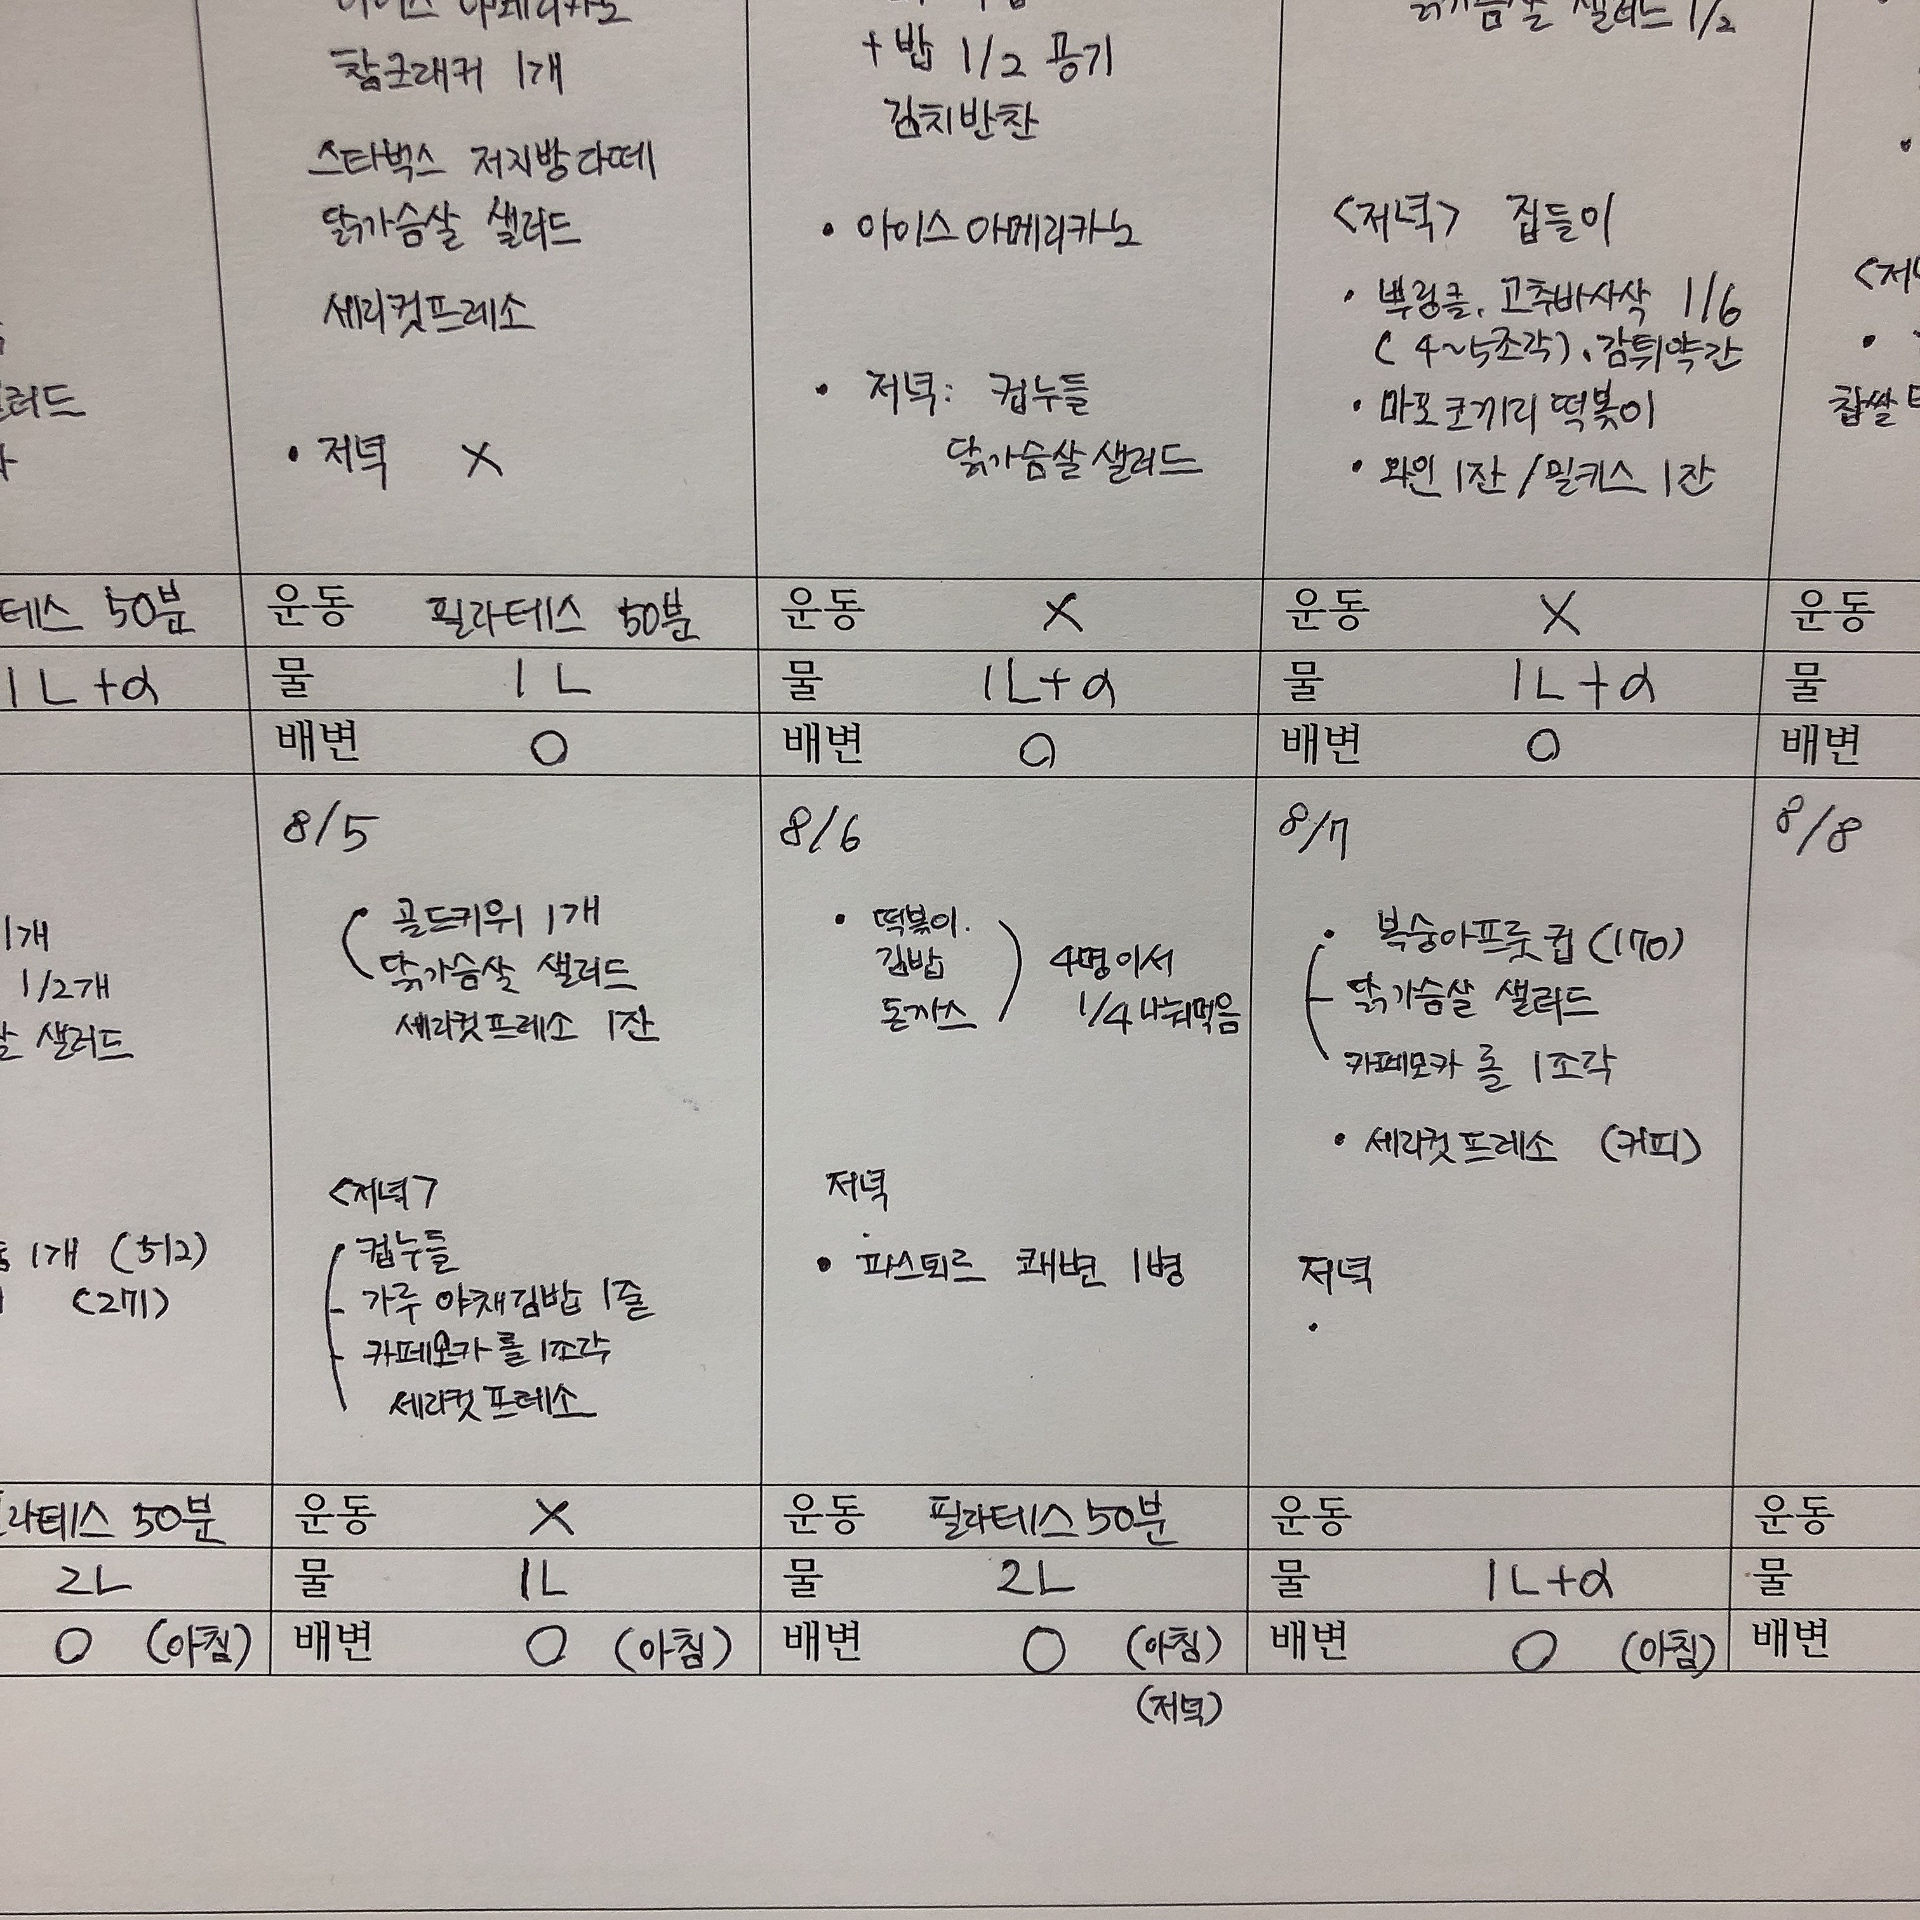 아이스 아메리카노
참크래커 1개
스타벅스 저지방라떼
닭가슴살 샐러드
세리컷프레소
• 저녁 X
+ 밥 1/2 공기
김치반찬
• 아이스 아메리카노
• 저녁: 컵누들
닭가슴살 샐러드
닭가슴살 샐러드 1/2
<저녁> 집들이
• 뿌링클, 고추바사삭 1/6
(4~5조각), 감튀약간
• 마포코끼리 떡볶이
• 와인 1잔 / 밀키스 1잔
찹쌀
테스 50분 운동 필라테스 50분 운동 X 운동 X 운동
1L+α 물 1L 물 1L+α 물 1L+α 물
배변 O 배변 O 배변 O 배변
1개
1/2개
샐러드
1개 (512)
(271)
8/5
• 골드키위 1개
닭가슴살 샐러드
세리컷프레소 1잔
<저녁>
컵누들
가루 야채김밥 1줄
카페모카 롤 1조각
세리컷프레소
8/6
• 떡볶이.
김밥
돈까스
4명이서
1/4 나눠먹음
저녁
• 파스퇴르 쾌변 1병
8/7
• 복숭아프룻컵 (170)
닭가슴살 샐러드
카페모카 롤 1조각
• 세리컷프레소 (커피)
저녁
•
8/8
라테스 50분 운동 X 운동 필라테스 50분 운동 운동
2L 물 1L 물 2L 물 1L+α 물
O (아침) 배변 O (아침) 배변 O (아침) 배변 O (아침) 배변
(저녁)